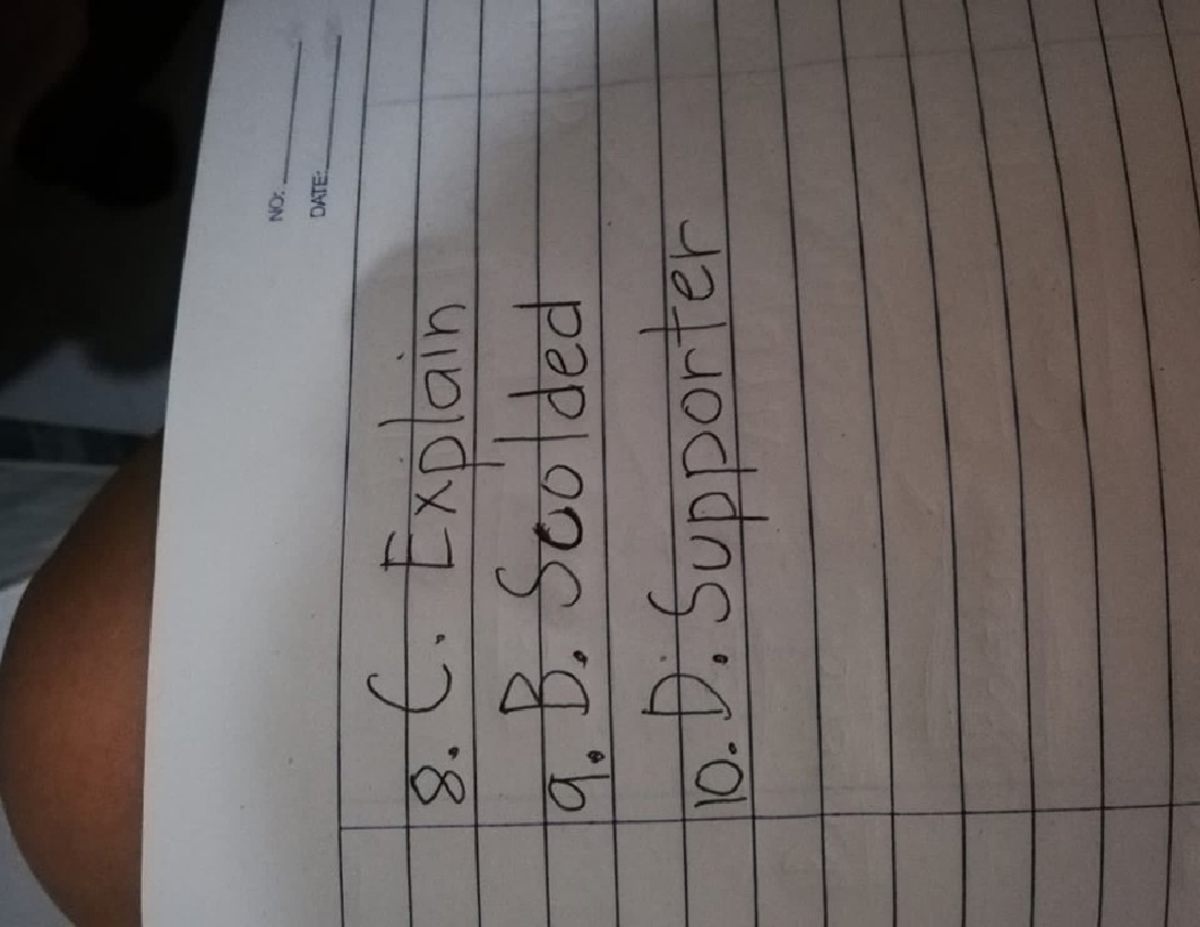 NO:
DATE:
8. C. Explain
9. B. Soolded
10. D. Supporter